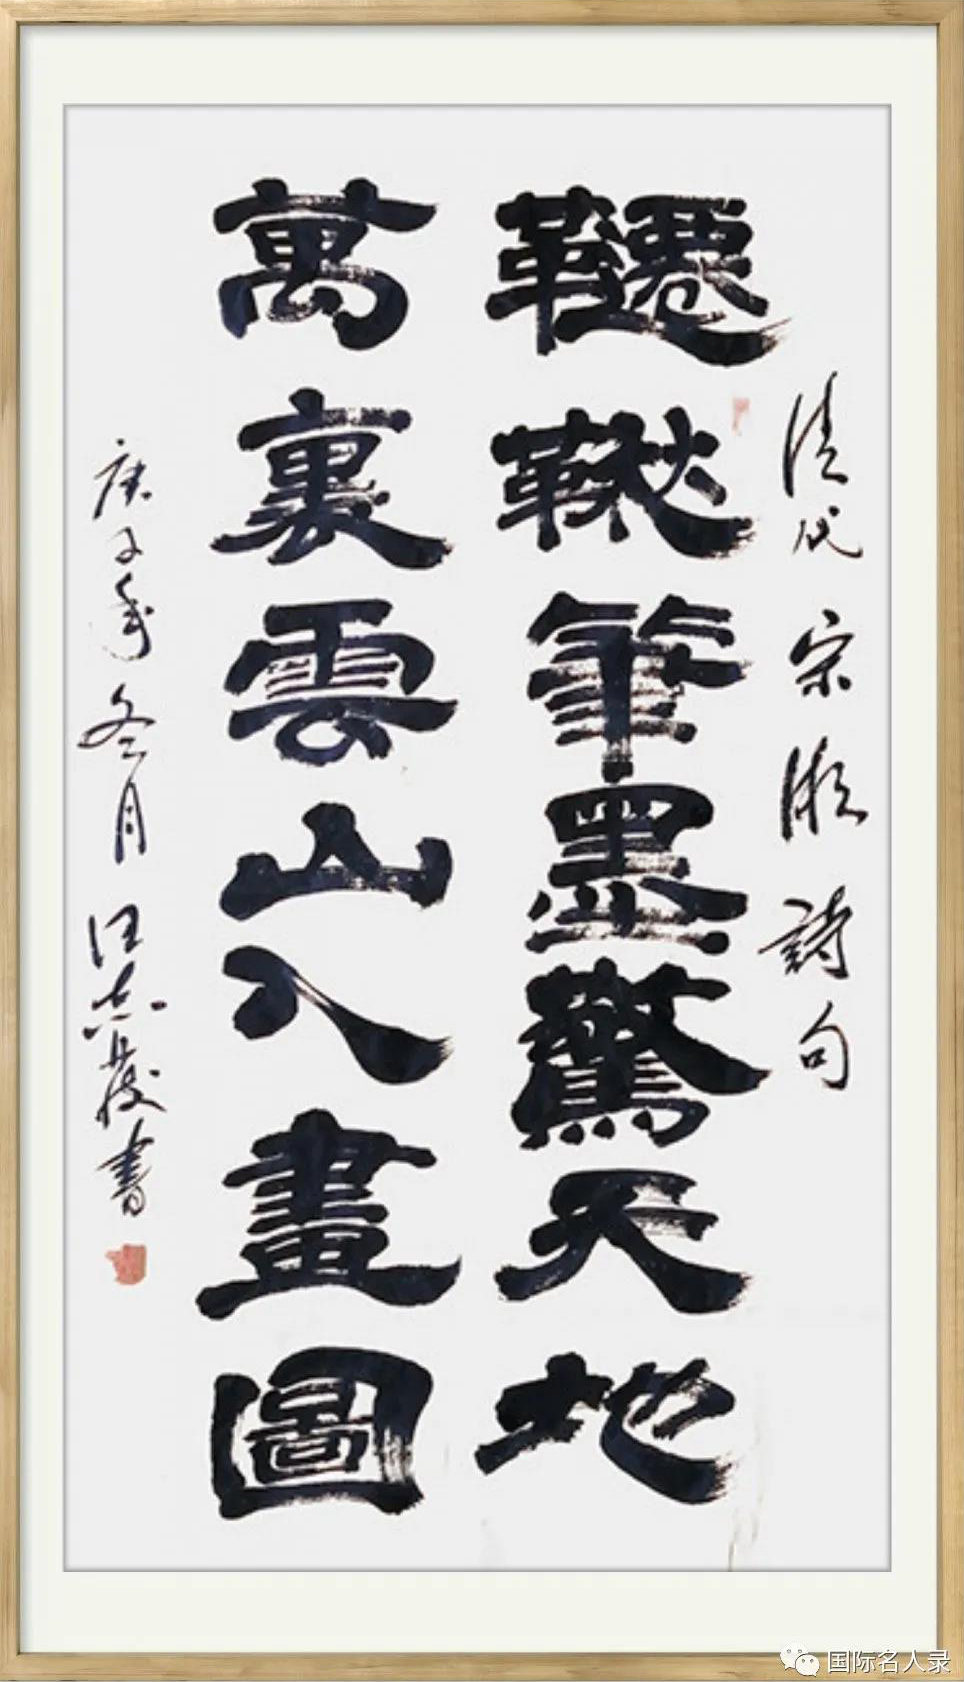 清代宋湘詩句
韆鞦筆墨驚天地
萬裏雲山入畫圖
庚子年冬月汪志發書
国际名人录